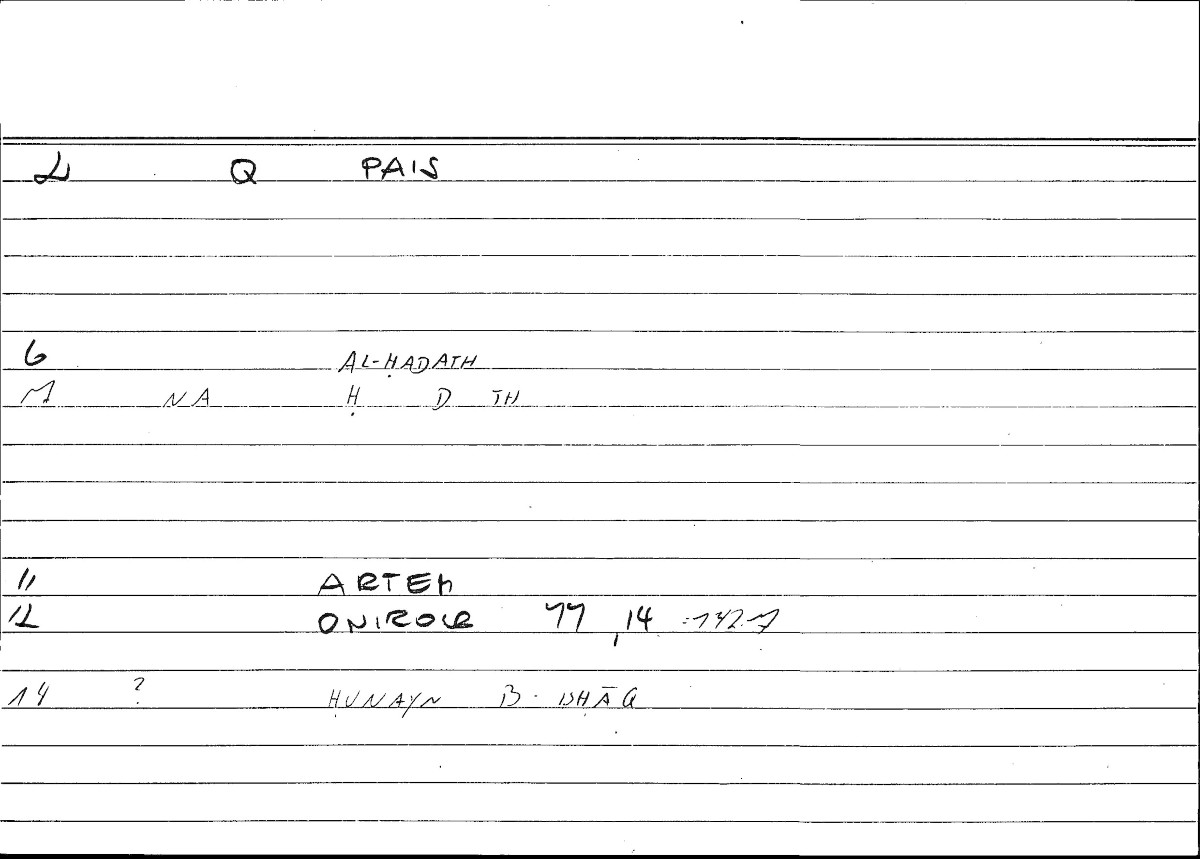 2 Q PAIS
6 AL-ḤADATH
7 NA Ḥ D TH
11 ARTEM
12 ONIROCR 77 ,14
14 ? ḤUNAYN B. ISḤĀQ